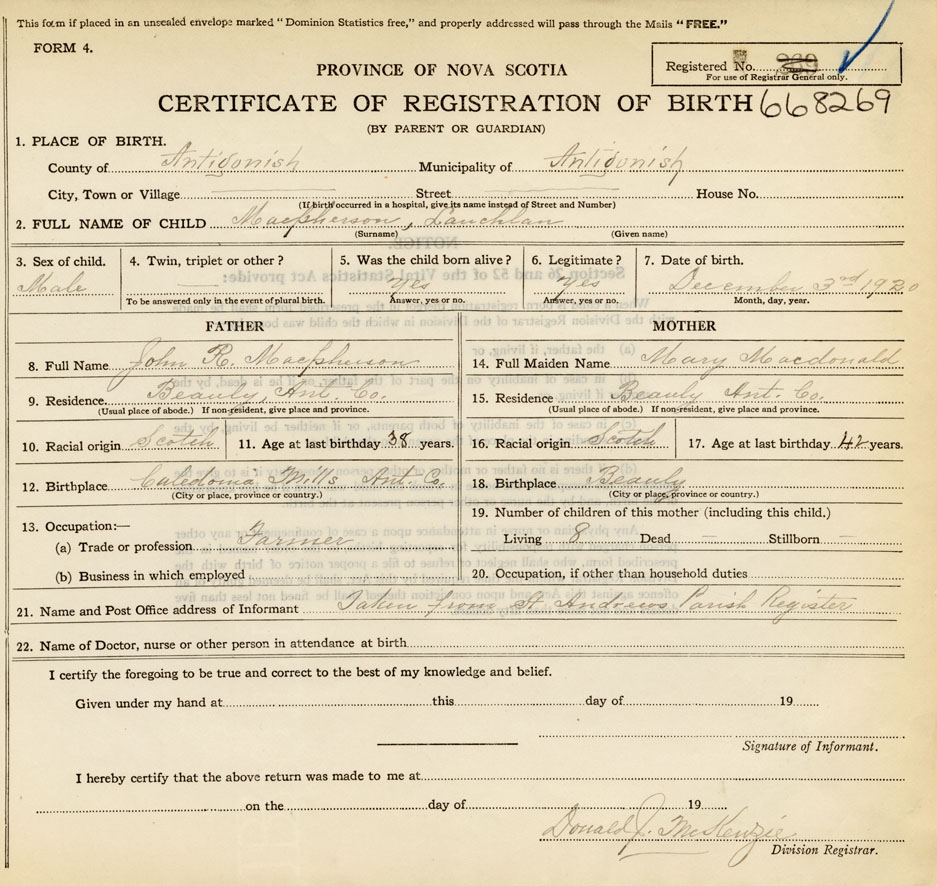 This form if placed in an unsealed envelope marked "Dominion Statistics free," and properly addressed will pass through the Mails "FREE."
FORM 4.
Registered No.
For use of Registrar General only.
PROVINCE OF NOVA SCOTIA
CERTIFICATE OF REGISTRATION OF BIRTH 668269
(BY PARENT OR GUARDIAN)
1. PLACE OF BIRTH.
County of Antigonish Municipality of Antigonish
City, Town or Village Street House No.
(If birth occurred in a hospital, give its name instead of Street and Number)
2. FULL NAME OF CHILD Macpherson, Lauchlan
(Surname) (Given name)
3. Sex of child. 4. Twin, triplet or other? 5. Was the child born alive? 6. Legitimate? 7. Date of birth.
Male yes yes December 3rd 1920
To be answered only in the event of plural birth. Answer, yes or no. Answer, yes or no. Month, day, year.
FATHER MOTHER
8. Full Name John R. Macpherson 14. Full Maiden Name Mary Macdonald
9. Residence Beauly, Ant. Co. 15. Residence Beauly Ant. Co.
(Usual place of abode.) If non-resident, give place and province. (Usual place of abode.) If non-resident, give place and province.
10. Racial origin Scotch 11. Age at last birthday 38 years. 16. Racial origin Scotch 17. Age at last birthday 42 years.
12. Birthplace Caledonia Mills Ant. Co. 18. Birthplace Beauly
(City or place, province or country.) (City or place, province or country.)
13. Occupation:— 19. Number of children of this mother (including this child.)
(a) Trade or profession Farmer Living 8 Dead — Stillborn —
(b) Business in which employed 20. Occupation, if other than household duties
21. Name and Post Office address of Informant Taken from St. Andrews Parish Register
22. Name of Doctor, nurse or other person in attendance at birth
I certify the foregoing to be true and correct to the best of my knowledge and belief.
Given under my hand at this day of 19
Signature of Informant.
I hereby certify that the above return was made to me at
on the day of 19
Donald J. McKenzie
Division Registrar.